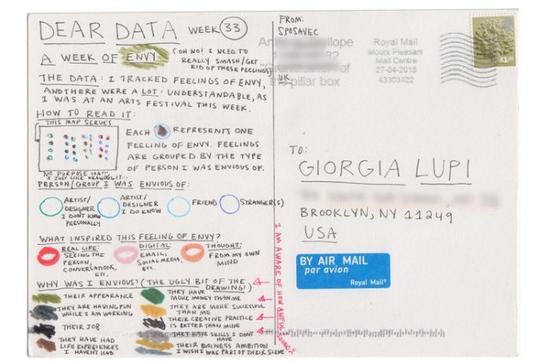 DEAR DATA WEEK 33
A WEEK OF ENVY (OH NO! I NEED TO REALLY SMASH/GET RID OF THESE FEELINGS)
THE DATA: I TRACKED FEELINGS OF ENVY,
AND THERE WERE A LOT: UNDERSTANDABLE, AS
I WAS AT AN ARTS FESTIVAL THIS WEEK.
HOW TO READ IT:
THIS MAP SERVES
NO PURPOSE
EACH REPRESENTS ONE
FEELING OF ENVY. FEELINGS
ARE GROUPED BY THE TYPE
OF PERSON I WAS ENVIOUS OF.
PERSON/GROUP I WAS ENVIOUS OF:
ARTIST/
DESIGNER
I DON'T KNOW
PERSONALLY
ARTIST/
DESIGNER
I DO KNOW
FRIEND
STRANGER(S)
WHAT INSPIRED THIS FEELING OF ENVY?
REAL LIFE:
SEEING THE
PERSON,
CONVERSATION,
ETC.
DIGITAL:
EMAIL,
SOCIAL MEDIA,
ETC.
THOUGHT:
FROM MY OWN
MIND
WHY WAS I ENVIOUS? (THE UGLY BIT OF THE
DRAWING!)
THEIR APPEARANCE
THEY ARE HAVING FUN
WHILE I AM WORKING
THEIR JOB
THEY HAVE HAD
LIFE EXPERIENCES
I HAVEN'T HAD
THEY HAVE
MORE MONEY THAN ME
THEY ARE MORE SUCCESSFUL
THAN ME
THEIR CREATIVE PRACTICE
IS BETTER THAN MINE
THEY HAVE SKILLS I DON'T
HAVE
THEIR BUSINESS AMBITION
I WISH I WAS PART OF THEIR SCENE
I AM AWARE OF HOW
FROM:
SPOSAVEC
UK
Royal Mail
Mount Pleasant
Mail Centre
27-04-2015
43303422
pillar box
TO:
GIORGIA LUPI
BROOKLYN, NY 11249
USA
BY AIR MAIL
par avion
Royal Mail